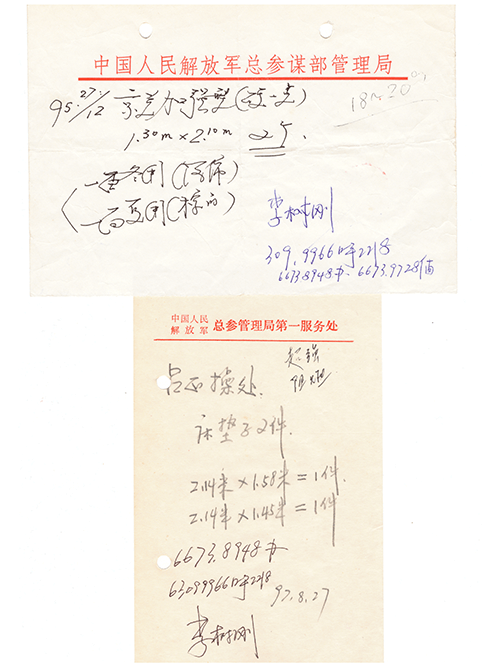 中国人民解放军总参谋部管理局
95.27/12 京兰加强型(
1.30m×2.10m 2个.
一面冬用(
一面夏用(
18m20
李树刚
309.9966呼2218
6673.8948办. 6673.9728宿
中国人民
解放军 总参管理局第一服务处
吕正操处.
床垫子2件.
2.14米×1.58米=1件.
2.14米×1.45米=1件
6673.8948办
6309966呼2218
97.8.27
李树刚